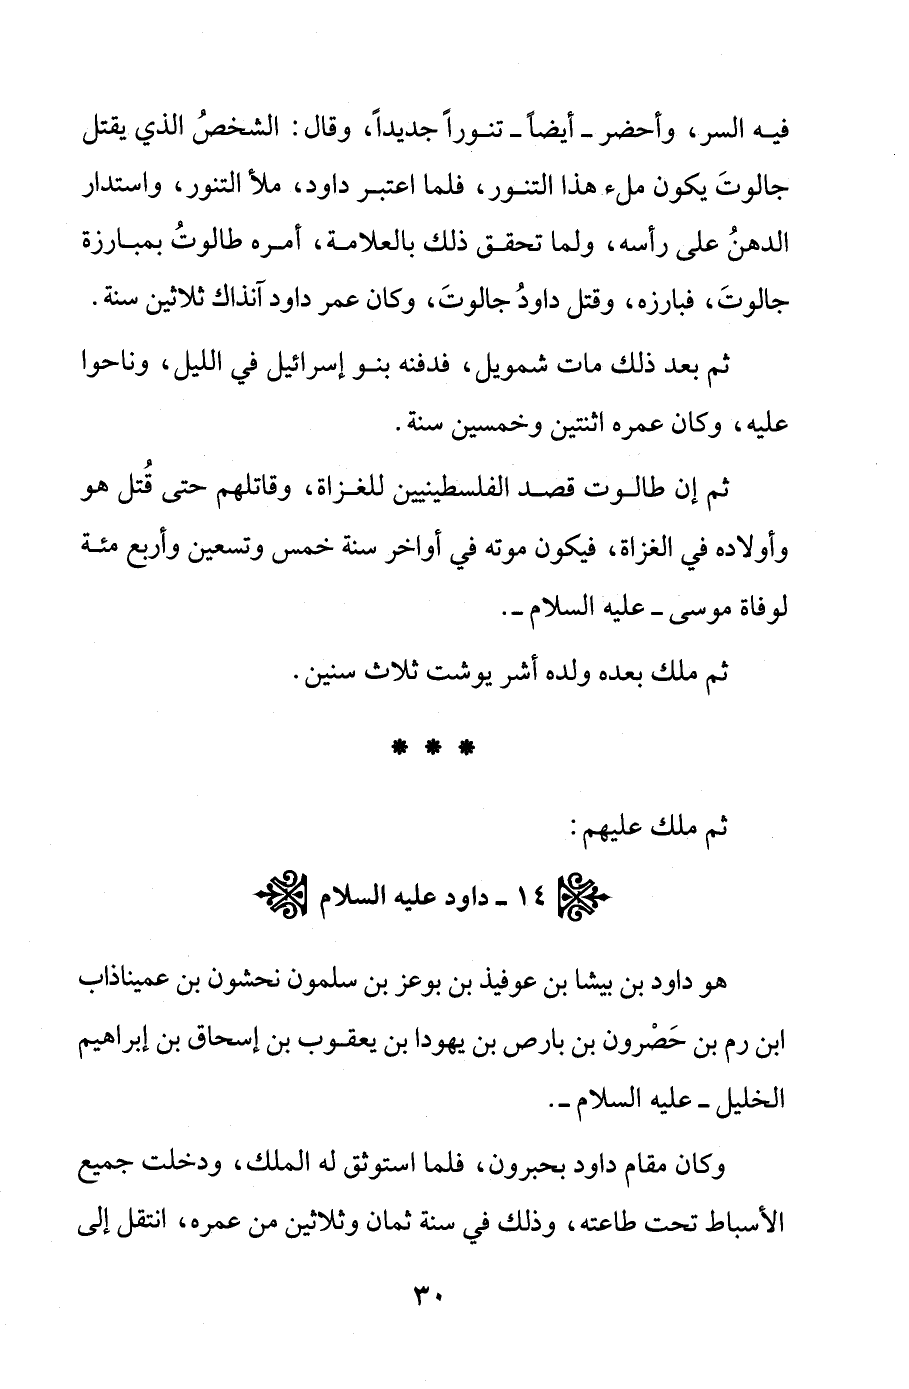 فيه السر، وأحضر ـ أيضاً ـ تنوراً جديداً، وقال: الشخصُ الذي يقتل
جالوتَ يكون ملء هذا التنور، فلما اعتبر داود، ملأ التنور، واستدار
الدهنُ على رأسه، ولما تحقق ذلك بالعلامة، أمره طالوتُ بمبارزة
جالوتَ، فبارزه، وقتل داودُ جالوتَ، وكان عمر داود آنذاك ثلاثين سنة.
ثم بعد ذلك مات شمويل، فدفنه بنو إسرائيل في الليل، وناحوا
عليه، وكان عمره اثنتين وخمسين سنة.
ثم إن طالوت قصد الفلسطينيين للغزاة، وقاتلهم حتى قُتل هو
وأولاده في الغزاة، فيكون موته في أواخر سنة خمس وتسعين وأربع مئة
لوفاة موسى ـ عليه السلام ـ.
ثم ملك بعده ولده أشر يوشت ثلاث سنين.
* * *
ثم ملك عليهم:
١٤ ـ داود عليه السلام
هو داود بن بيشا بن عوفيذ بن بوعز بن سلمون نحشون بن عميناذاب
ابن رم بن حَصْرون بن بارص بن يهودا بن يعقوب بن إسحاق بن إبراهيم
الخليل ـ عليه السلام ـ.
وكان مقام داود بحبرون، فلما استوثق له الملك، ودخلت جميع
الأسباط تحت طاعته، وذلك في سنة ثمان وثلاثين من عمره، انتقل إلى
٣٠